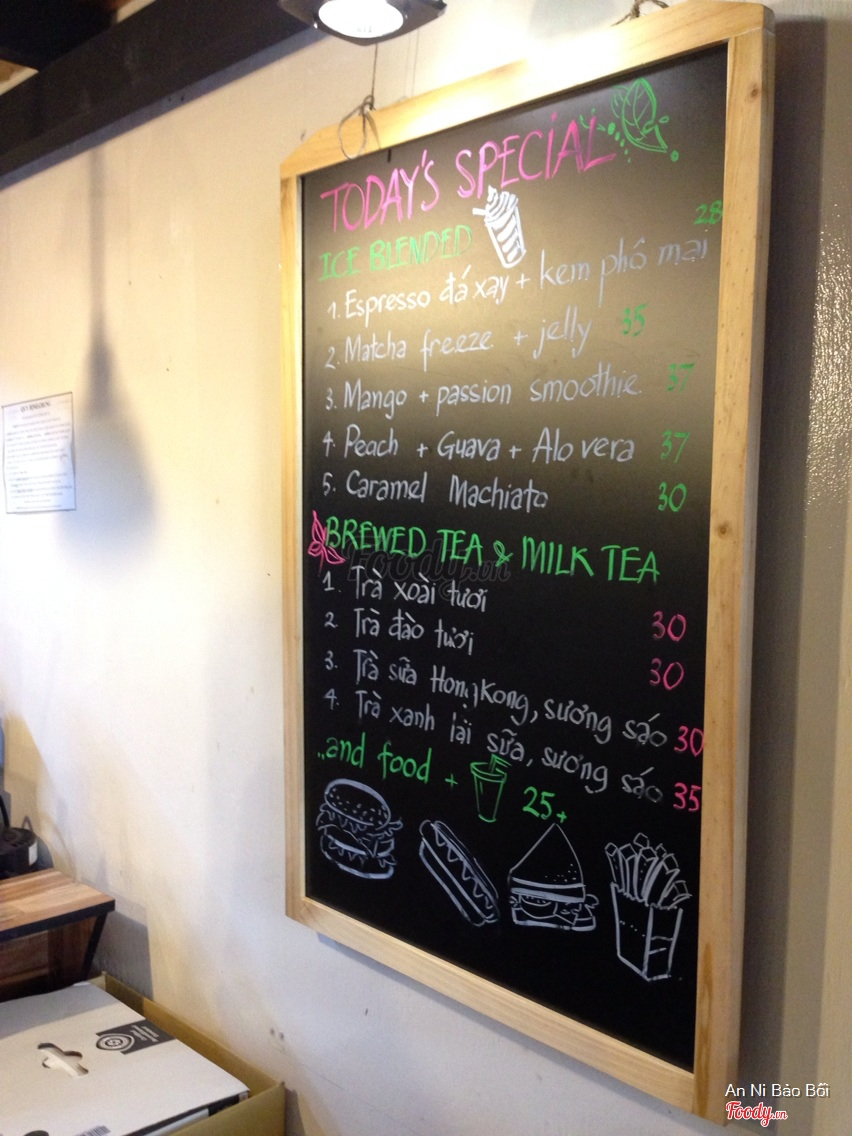 TODAY'S SPECIAL
ICE BLENDED
28
1. Espresso đá xay + kem phô mai
2. Matcha freeze + jelly 35
3. Mango + passion smoothie 37
4. Peach + Guava + Alo vera 37
5. Caramel Machiato 30
BREWED TEA & MILK TEA
1. Trà xoài tươi 30
2. Trà đào tươi 30
3. Trà sữa HongKong, sương sáo 30
4. Trà xanh lài sữa, sương sáo 35
..and food + 25+
Foody.vn
An Ni Bảo Bối
Foody.vn